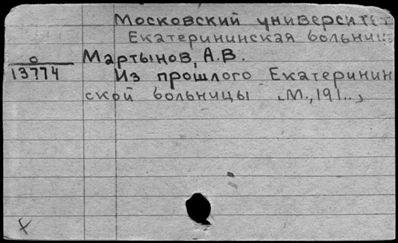 Московский университет
Екатерининская больница
Мартынов, А.В.
о
13774
Из прошлого Екатеринин
ской больницы М., 191..,